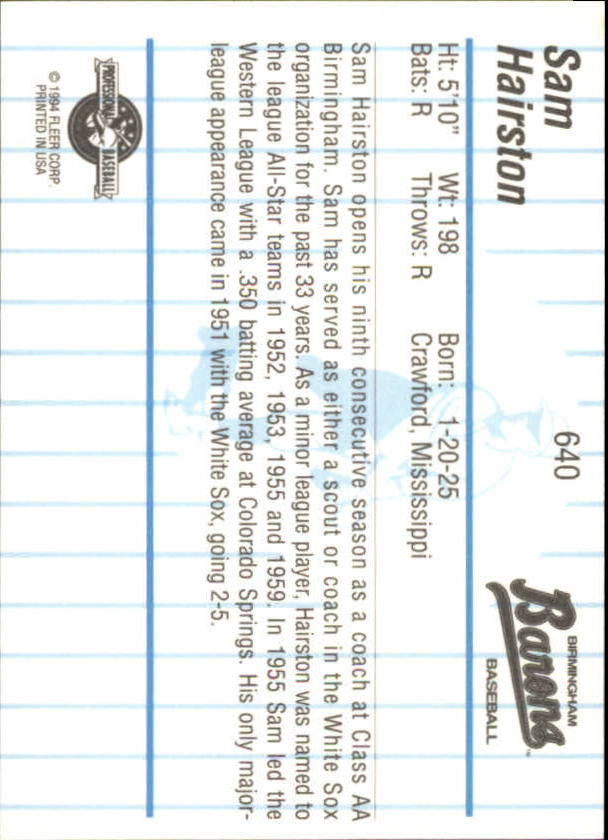 Sam
Hairston
640
BIRMINGHAM
Barons
BASEBALL
Ht: 5'10" Wt: 198 Born: 1-20-25
Bats: R Throws: R Crawford, Mississippi
Sam Hairston opens his ninth consecutive season as a coach at Class AA
Birmingham. Sam has served as either a scout or coach in the White Sox
organization for the past 33 years. As a minor league player, Hairston was named to
the league All-Star teams in 1952, 1953, 1955 and 1959. In 1955 Sam led the
Western League with a .350 batting average at Colorado Springs. His only major-
league appearance came in 1951 with the White Sox, going 2-5.
PROFESSIONAL
BASEBALL
© 1994 FLEER CORP.
PRINTED IN USA